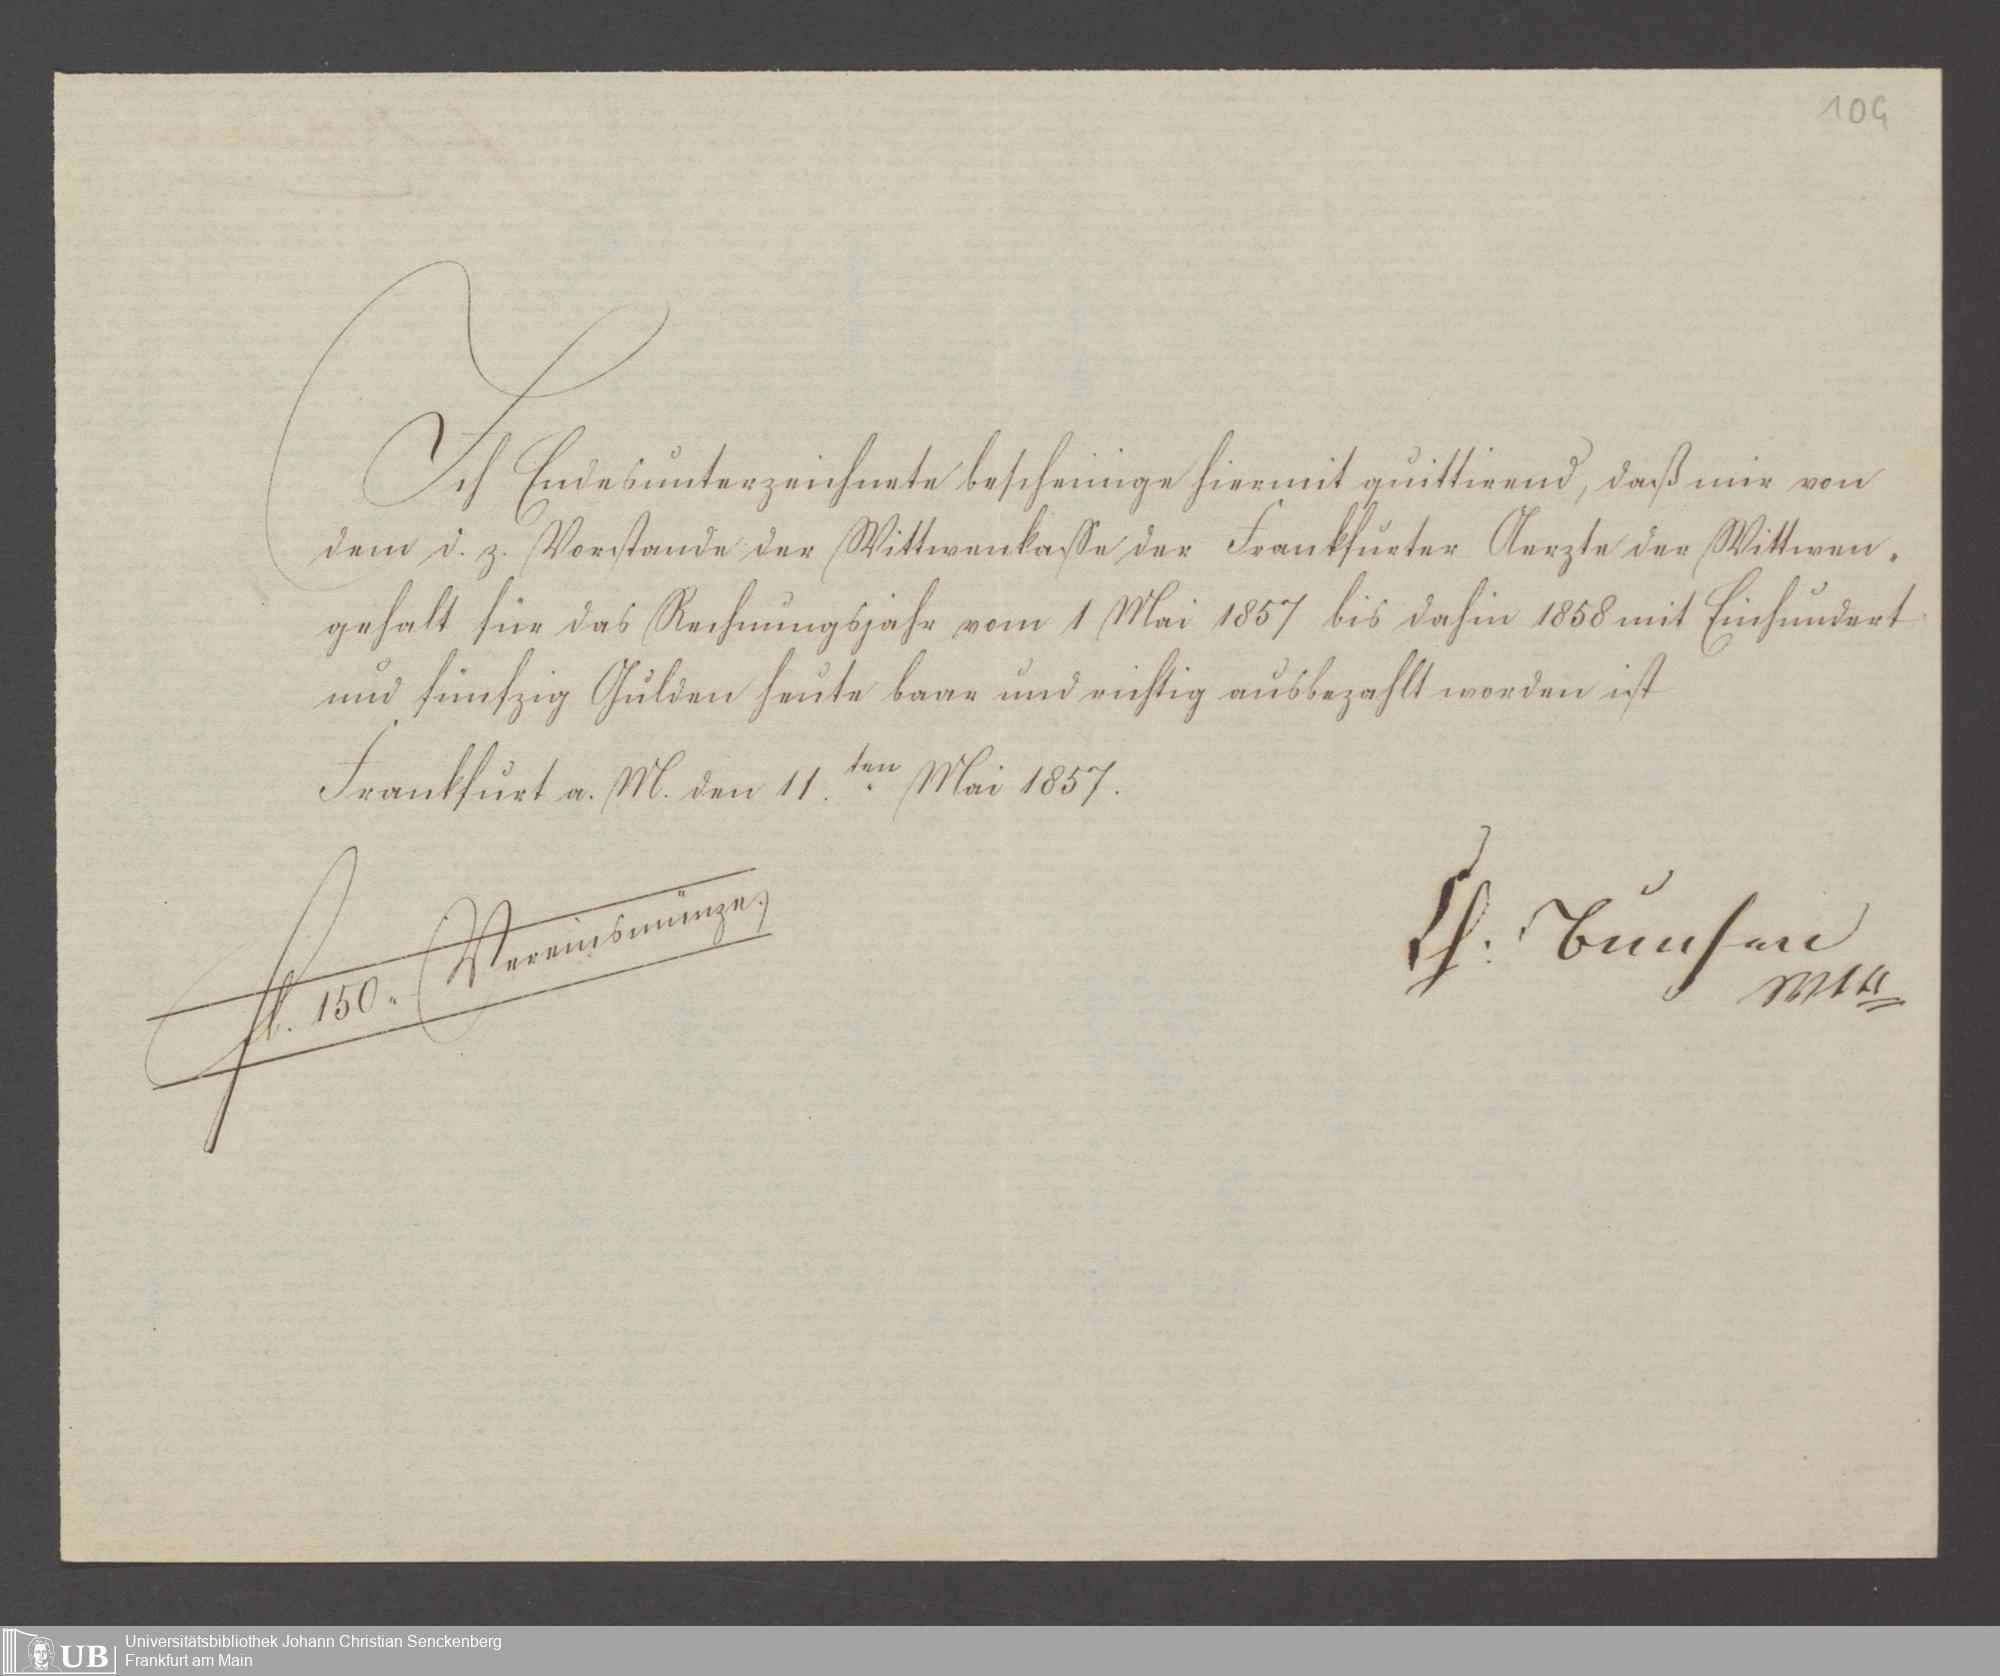 104
Ich Endesunterzeichnete bescheinige hiermit quittirend, daß mir von
dem d. z. Vorstande der Wittwenkasse der Frankfurter Aerzte der Wittwen-
gehalt für das Rechnungsjahr vom 1 Mai 1857 bis dahin 1858 mit Einhundert
und fünfzig Gulden heute baar und richtig ausbezahlt worden ist
Frankfurt a. M. den 11.ten Mai 1857.
fl. 150.- Vereinsmünze.
Ch. Bunsen
Wtt
UB
Universitätsbibliothek Johann Christian Senckenberg
Frankfurt am Main